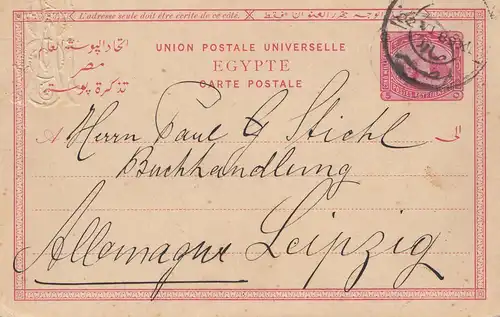 L'adresse seule doit être écrite de ce côté.
UNION POSTALE UNIVERSELLE
EGYPTE
CARTE POSTALE
اتحاد البوستة العام
مصر
تذكرة بوستة
A
الى
Herrn Paul G Stiehl
Buchhandlung
Allemagne Leipzig